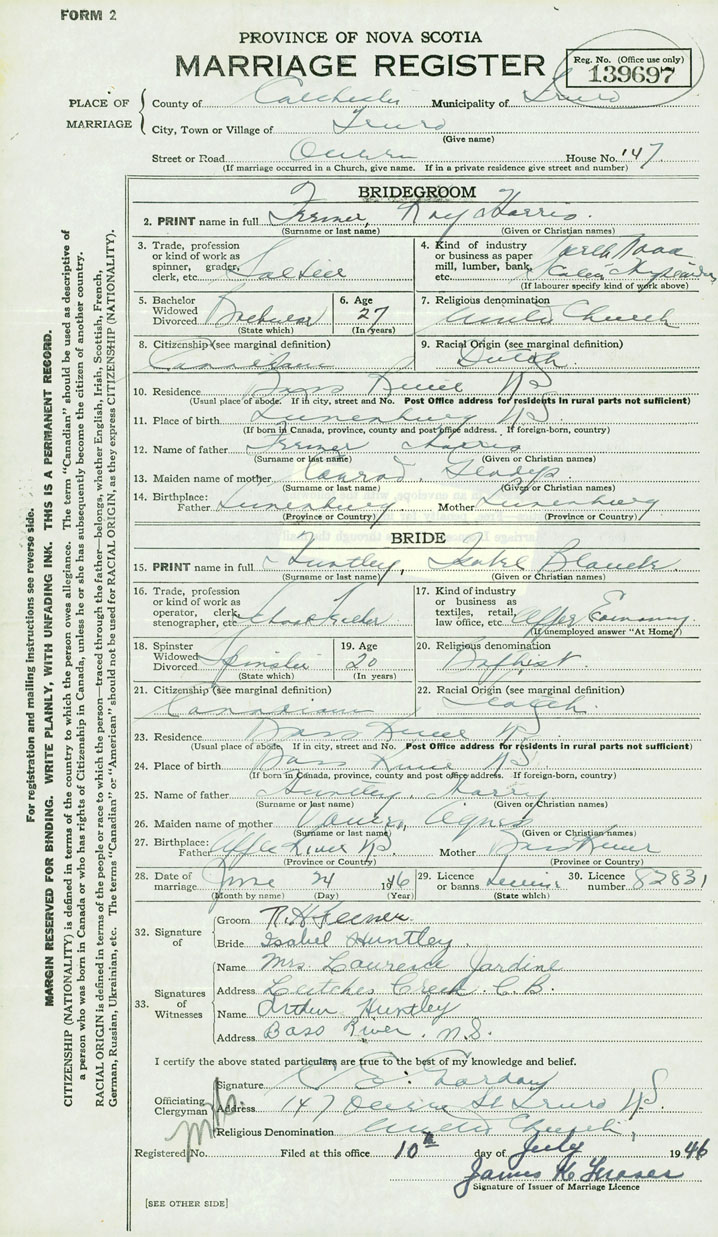 FORM 2
PROVINCE OF NOVA SCOTIA
MARRIAGE REGISTER
Reg. No. (Office use only)
139697
PLACE OF MARRIAGE
County of Colchester Municipality of Truro
City, Town or Village of Truro
(Give name)
Street or Road Queen House No. 147
(If marriage occurred in a Church, give name. If in a private residence give street and number)
BRIDEGROOM
2. PRINT name in full Roy Harris
(Surname or last name) (Given or Christian names)
3. Trade, profession or kind of work as spinner, grader, clerk, etc.
4. Kind of industry or business as paper mill, lumber, bank, etc.
(If labourer specify kind of work above)
5. Bachelor Widowed Divorced Bachelor
(State which)
6. Age 27
(In years)
7. Religious denomination United Church
8. Citizenship (see marginal definition) Canadian
9. Racial Origin (see marginal definition) Dutch
10. Residence Bass River NS
(Usual place of abode. If in city, street and No. Post Office address for residents in rural parts not sufficient)
11. Place of birth Lunenburg NS
(If born in Canada, province, county and post office address. If foreign-born, country)
12. Name of father Harris
(Surname or last name) (Given or Christian names)
13. Maiden name of mother Conrad, Gladys
(Surname or last name) (Given or Christian names)
14. Birthplace: Father Lunenburg Mother Lunenburg
(Province or Country) (Province or Country)
BRIDE
15. PRINT name in full Huntley, Isabel Blanch
(Surname or last name) (Given or Christian names)
16. Trade, profession or kind of work as operator, clerk, stenographer, etc.
17. Kind of industry or business as textiles, retail, law office, etc.
(If unemployed answer "At Home")
18. Spinster Widowed Divorced Spinster
(State which)
19. Age 20
(In years)
20. Religious denomination Baptist
21. Citizenship (see marginal definition) Canadian
22. Racial Origin (see marginal definition) Scotch
23. Residence Bass River NS
(Usual place of abode. If in city, street and No. Post Office address for residents in rural parts not sufficient)
24. Place of birth Bass River NS
(If born in Canada, province, county and post office address. If foreign-born, country)
25. Name of father Huntley, Harry
(Surname or last name) (Given or Christian names)
26. Maiden name of mother Agnes
(Surname or last name) (Given or Christian names)
27. Birthplace: Father River NS. Mother Bass River
(Province or Country) (Province or Country)
28. Date of marriage June 24 1946
(Month by name) (Day) (Year)
29. Licence or banns
(State which)
30. Licence number 82831
32. Signature of
Groom
Bride Isabel Huntley
33. Signatures of Witnesses
Name Mrs Jardine
Address Leitches Creek. C.B.
Name Arthur Huntley
Address Bass River. N.S.
I certify the above stated particulars are true to the best of my knowledge and belief.
Officiating Clergyman
Signature
Address 147 Queen St Truro NS.
Religious Denomination United Church
Registered No. Filed at this office 10th day of July 1946
James K Fraser
Signature of Issuer of Marriage Licence
[SEE OTHER SIDE]
For registration and mailing instructions see reverse side.
MARGIN RESERVED FOR BINDING. WRITE PLAINLY, WITH UNFADING INK. THIS IS A PERMANENT RECORD.
CITIZENSHIP (NATIONALITY) is defined in terms of the country to which the person owes allegiance. The term "Canadian" should be used as descriptive of
a person who was born in Canada or who has rights of Citizenship in Canada, unless he or she has subsequently become the citizen of another country.
RACIAL ORIGIN is defined in terms of the people or race to which the person—traced through the father—belongs, whether English, Irish, Scottish, French,
German, Russian, Ukrainian, etc. The terms "Canadian" or "American" should not be used for RACIAL ORIGIN, as they express CITIZENSHIP (NATIONALITY).